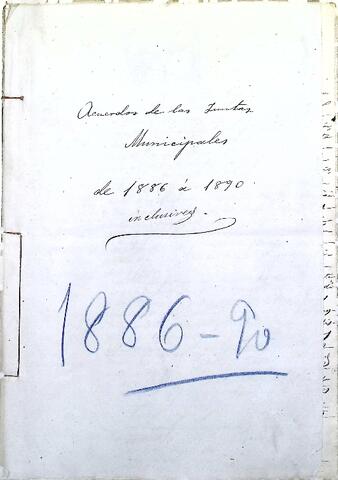 Acuerdos de las Juntas
Municipales
de 1886 á 1890
inclusives.
1886-90